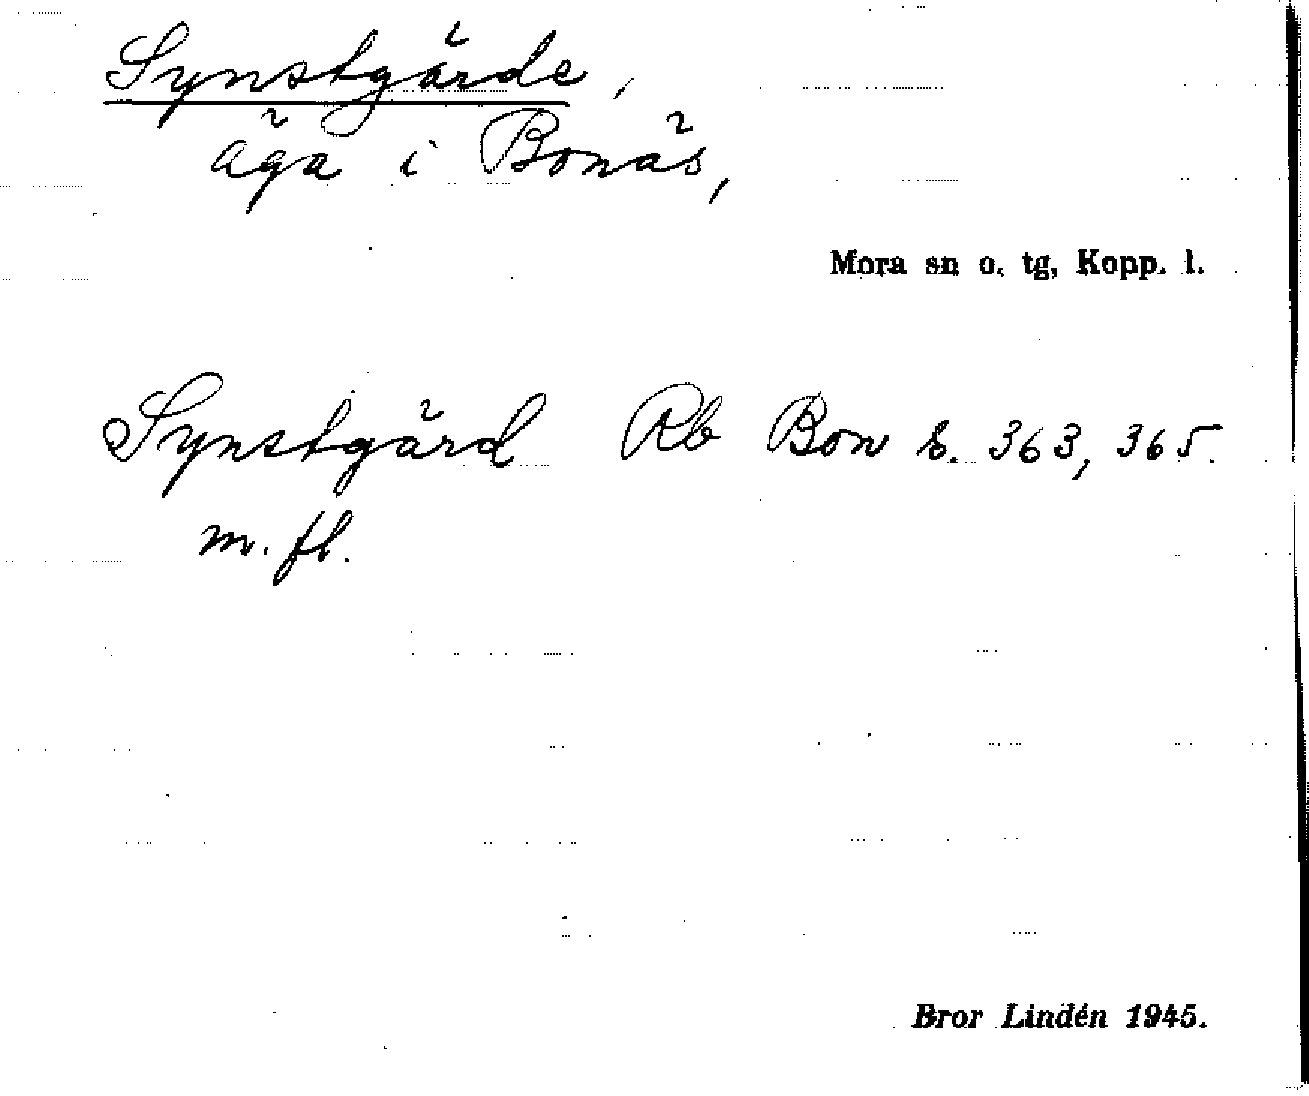 Synstgärde,
äga i Bonäs,
Mora sn o. tg, Kopp. l.
Synstgärd Rb Bon s. 363, 365.
m. fl.
Bror Lindén 1945.